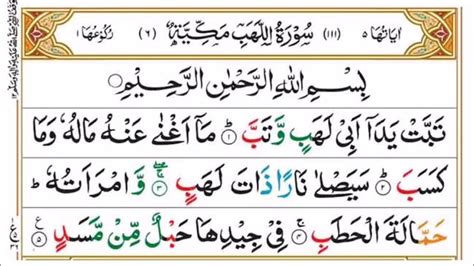 اٰيَاتُهَا ٥ (١١١) سُوْرَةُ اللَّهَبِ مَكِّيَّةٌ (٦) رُكُوْعُهَا ١
بِسْمِ اللّٰهِ الرَّحْمٰنِ الرَّحِيْمِ
تَبَّتْ يَدَاۤ اَبِیْ لَهَبٍ وَّتَبَّ ١ مَاۤ اَغْنٰی عَنْهُ مَالُهٗ وَمَا
كَسَبَ ٢ سَیَصْلٰی نَارًا ذَاتَ لَهَبٍ ٣ وَّامْرَاَتُهٗ ط
حَمَّالَةَ الْحَطَبِ ٤ فِیْ جِیْدِهَا حَبْلٌ مِّنْ مَّسَدٍ ٥